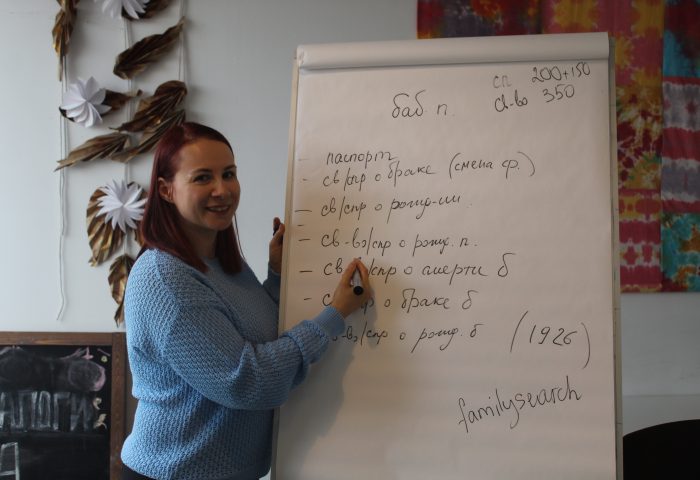 сп 200+150
св-во 350
баб. п.
– паспорт
– св/спр о браке (смена ф.)
– св/спр о рожд-ии
– св-во/спр о рожд. п.
– св /спр о смерти б
– о браке б
/спр о рожд. б (1926)
familysearch